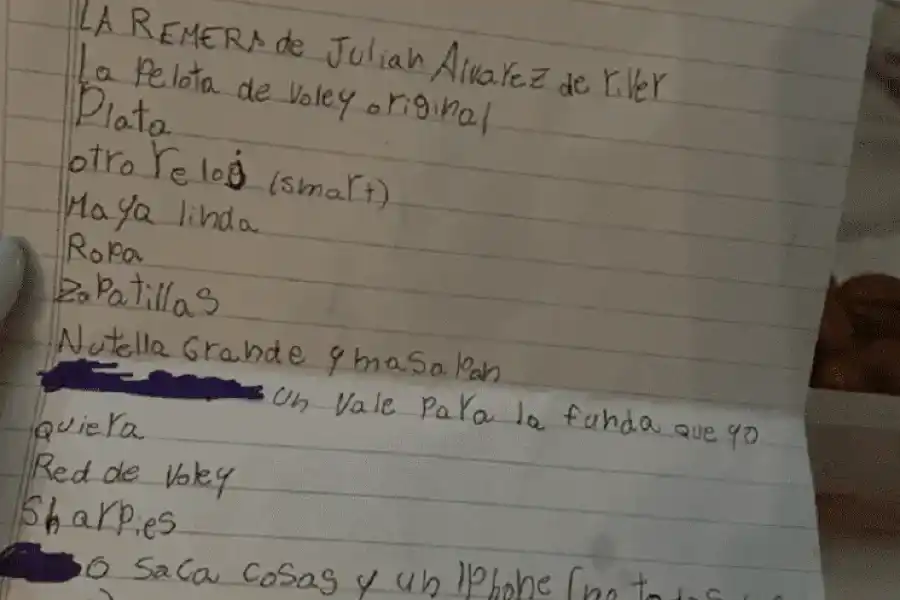 LA REMERA de Julian Alvarez de river
La Pelota de voley original
Plata
otro reloj (smart)
Maya linda
Ropa
Zapatillas
Nutella Grande y masapan
un vale para la funda que yo
quiera
Red de voley
Sharpies
o saca cosas y un IPhone (no todos